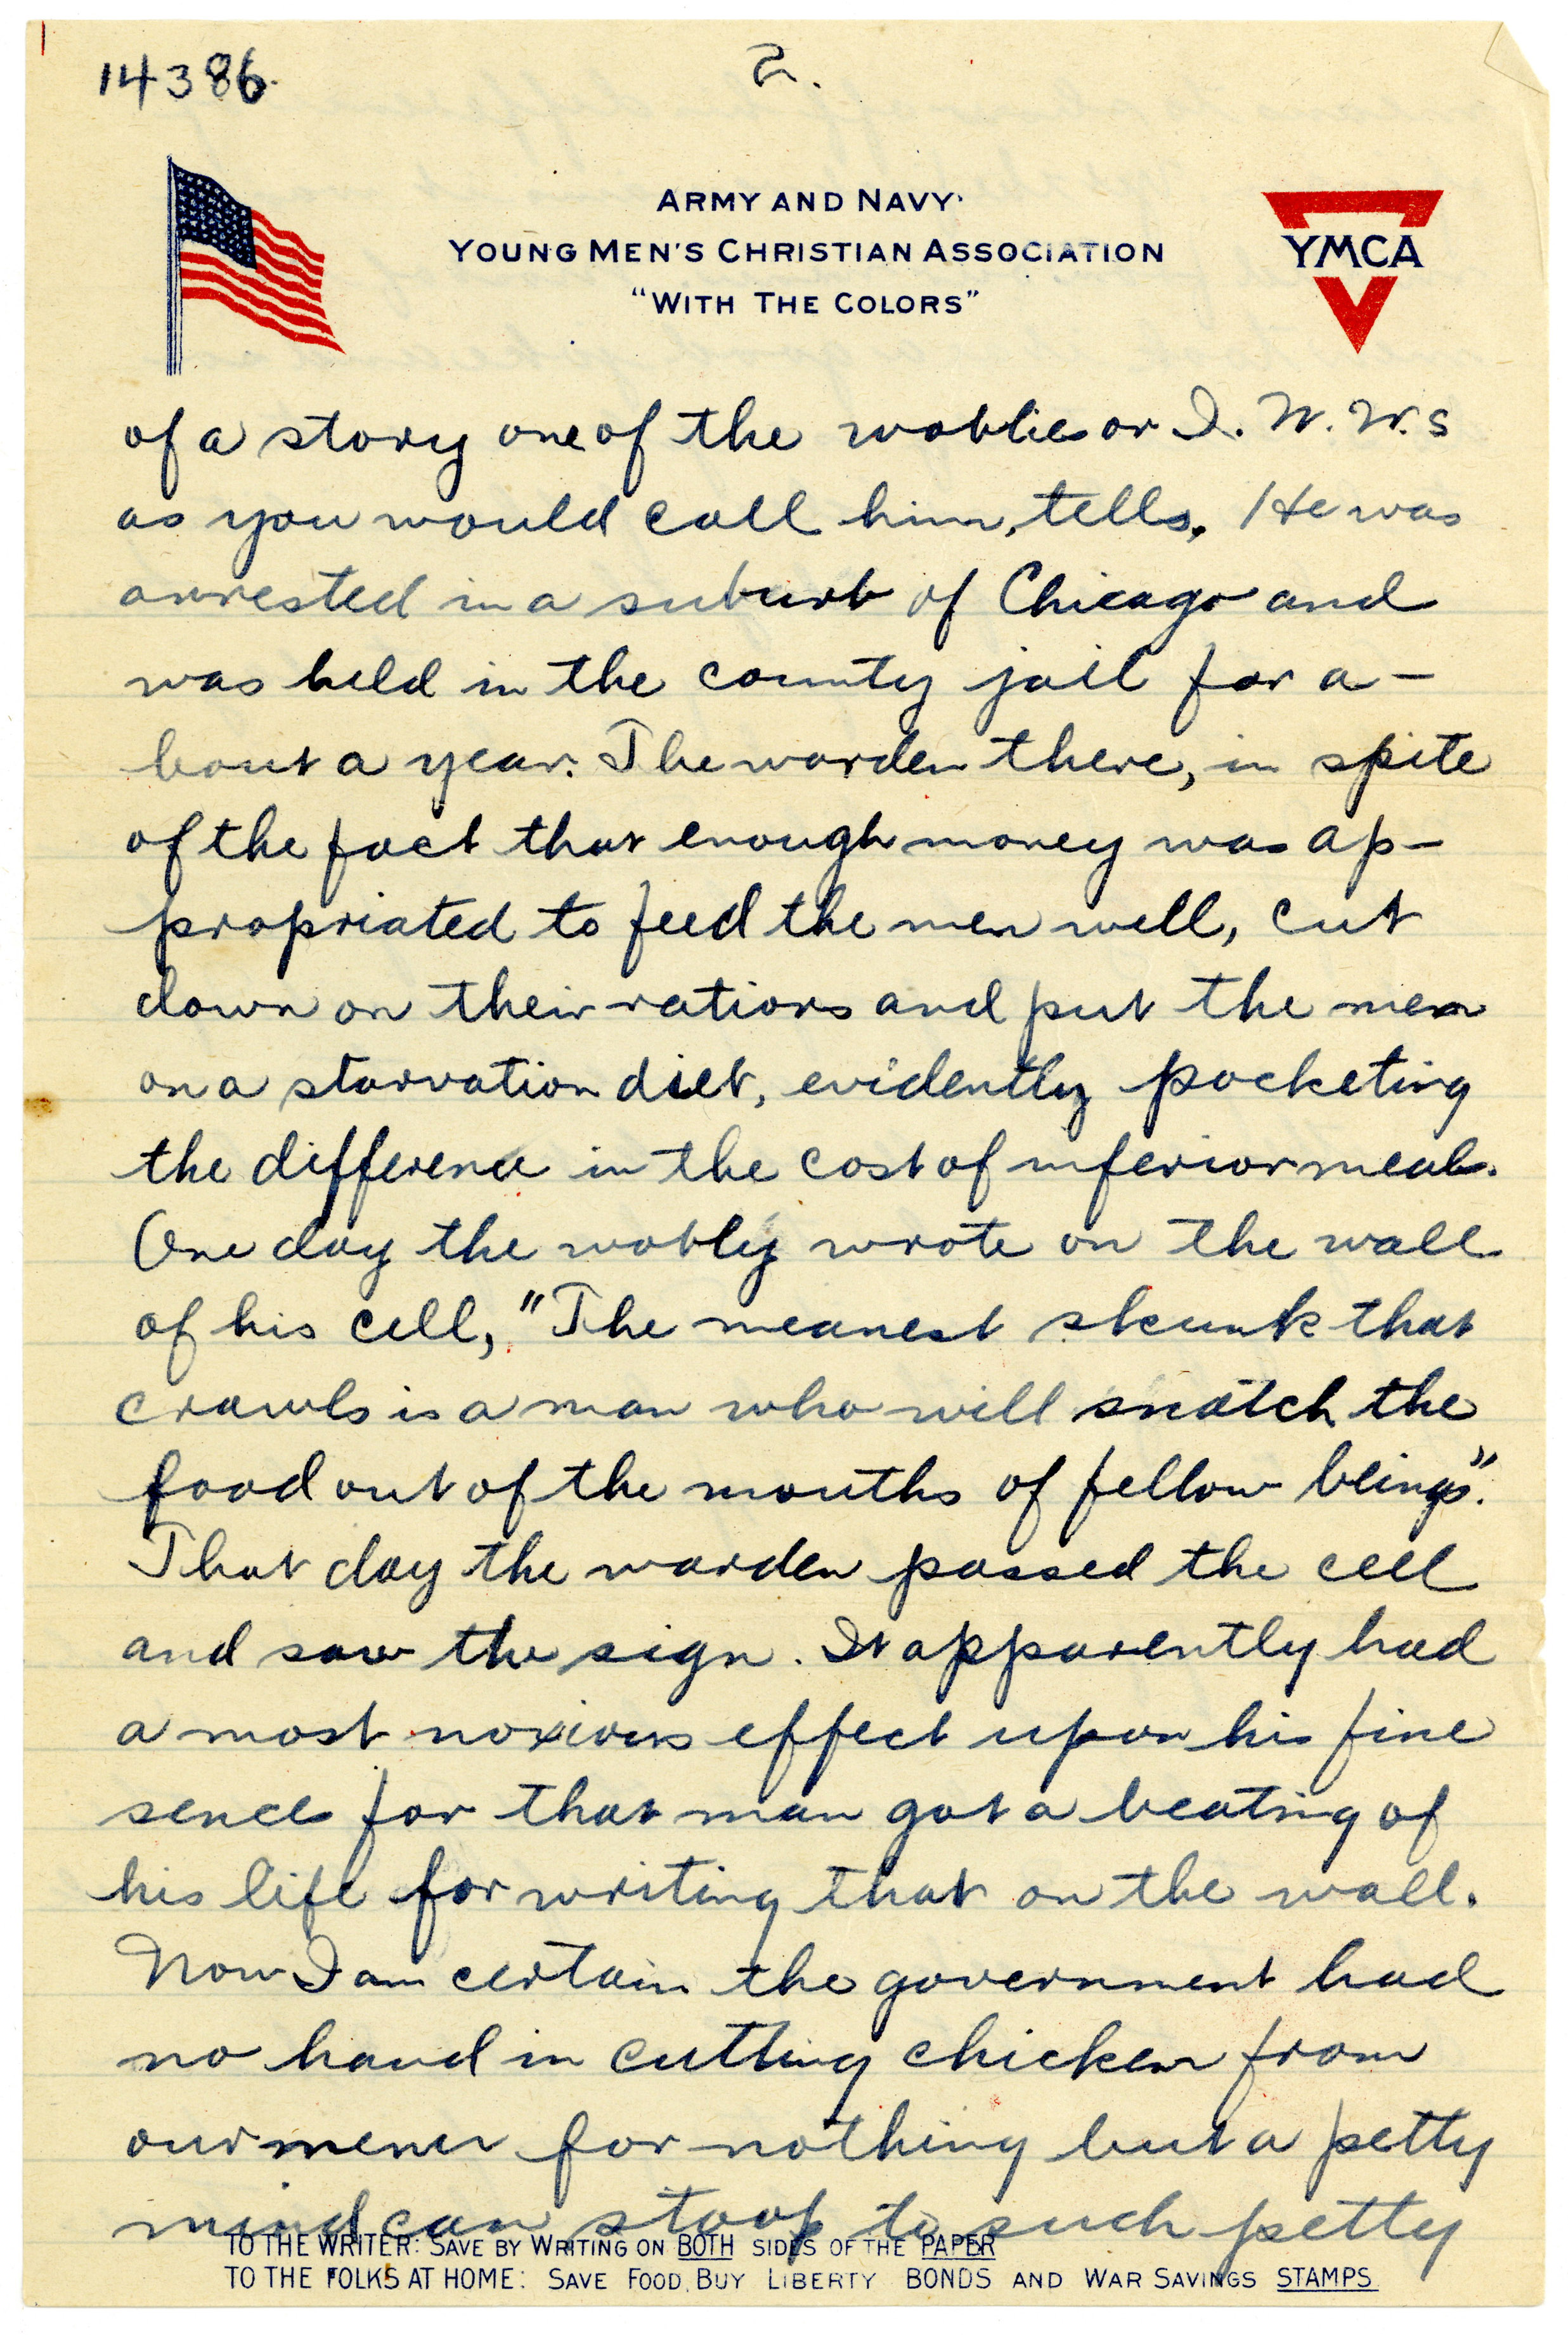 14386.
2.
ARMY AND NAVY
YOUNG MEN'S CHRISTIAN ASSOCIATION
"WITH THE COLORS"
YMCA
of a story one of the woblies or I. W. W.s
as you would call him, tells. He was
arrested in a suburb of Chicago and
was held in the county jail for a-
bout a year. The warden there, in spite
of the fact that enough money was ap-
propriated to feed the men well, cut
down on their rations and put the men
on a starvation diet, evidently pocketing
the difference in the cost of inferior meals.
One day the wobly wrote on the wall
of his cell, "The meanest skunk that
crawls is a man who will snatch the
food out of the mouths of fellow beings".
That day the warden passed the cell
and saw the sign. It apparently had
a most noxious effect upon his fine
sences for that man got a beating of
his life for writing that on the wall.
Now I am certain the government had
no hand in cutting chicken from
our menu for nothing but a petty
mind can stoop to such petty
TO THE WRITER: SAVE BY WRITING ON BOTH SIDES OF THE PAPER
TO THE FOLKS AT HOME: SAVE FOOD, BUY LIBERTY BONDS AND WAR SAVINGS STAMPS